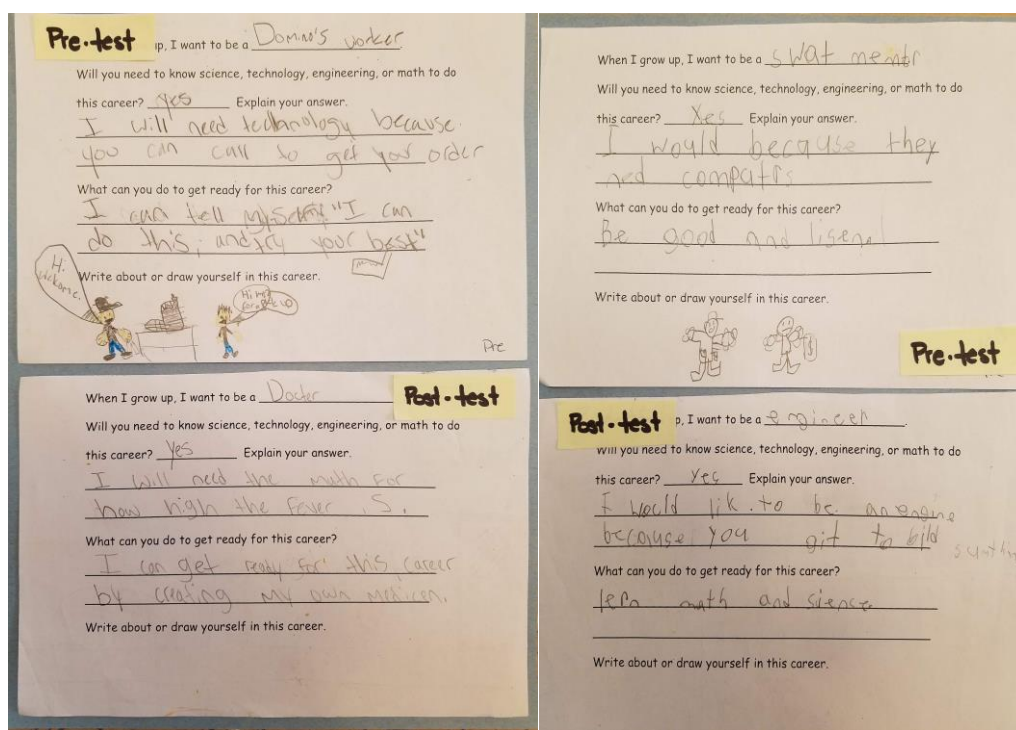 Pre-test
up, I want to be a Domino's worker
Will you need to know science, technology, engineering, or math to do
this career? Yes Explain your answer.
I will need technology because
you can call to get your order
What can you do to get ready for this career?
I can tell myself "I can
do this, and try your best"
Write about or draw yourself in this career.
Hi
welcome.
Hi
Pre
When I grow up, I want to be a Docter
Post-test
Will you need to know science, technology, engineering, or math to do
this career? Yes Explain your answer.
I will need the math for
how high the fever .S.
What can you do to get ready for this career?
I can get ready for this career
by creating my own medicen.
Write about or draw yourself in this career.
When I grow up, I want to be a swat
Will you need to know science, technology, engineering, or math to do
this career? Yes Explain your answer.
I would because they
ned computrs
What can you do to get ready for this career?
Be good and lisen
Write about or draw yourself in this career.
Pre-test
Post-test
p, I want to be a engineer.
Will you need to know science, technology, engineering, or math to do
this career? yes Explain your answer.
I would lik to be an engine
because you git to bild
What can you do to get ready for this career?
lern math and sience
Write about or draw yourself in this career.